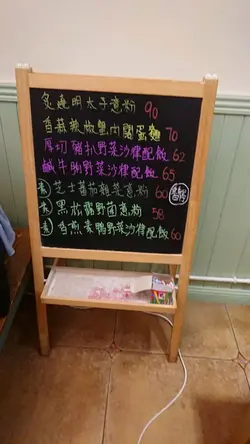 炙燒明太子意粉 90
香蒜辣椒蟹肉闊蛋麵 70
厚切豬扒野菜沙律配飯 62
鹹牛肋野菜沙律配飯 65
素 芝士蕃茄雜菜意粉 60
素 黑松露野菌意粉 58
素 香煎素鴨野菜沙律配飯 60